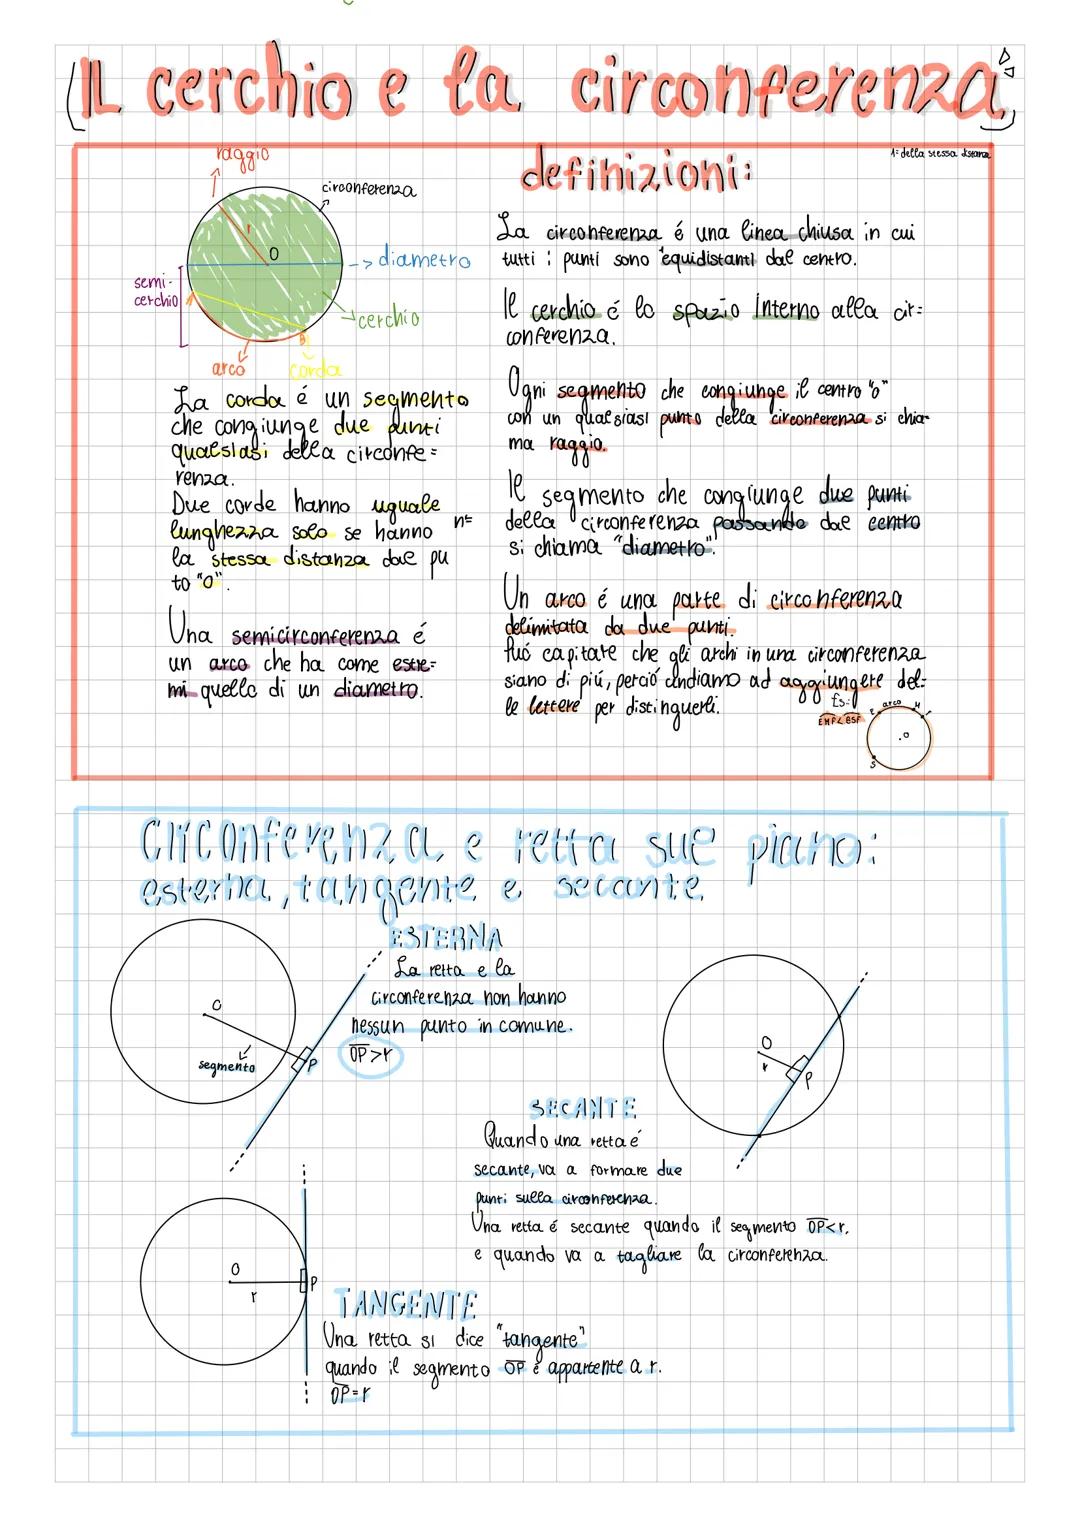 IL cerchio e la circonferenza
raggio
1= della stessa distanza
definizioni:
circonferenza
r
O
diametro
semi-
cerchio
cerchio
A
B
arco
corda
La circonferenza é una linea chiusa in cui
tutti i punti sono ¹equidistanti dal centro.
Il cerchio é lo spazio interno alla cir=
conferenza.
Ogni segmento che congiunge il centro "o"
con un qualsiasi punto della circonferenza si chia-
ma raggio.
Il segmento che congiunge due punti
della circonferenza passando dal centro
si chiama "diametro".
Un arco é una parte di circonferenza
delimitata da due punti.
Puó capitare che gli archi in una circonferenza
siano di piú, perció andiamo ad aggiungere del=
le lettere per distinguerli.
Es:
arco
M
F
E
.o
S
La corda é un segmento
che congiunge due punti
qualsiasi della circonfe=
renza.
Due corde hanno uguale
lunghezza solo se hanno
la stessa distanza dal pu n=
to "O".
Una semicirconferenza é
un arco che ha come estre=
mi quello di un diametro.
Circonferenza e retta sul piano:
esterna, tangente e secante
ESTERNA
La retta e la
circonferenza non hanno
nessun punto in comune.
OP>r
O
segmento
P
O
r
P
SECANTE
Quando una retta é
secante, va a formare due
punti sulla circonferenza.
Una retta é secante quando il segmento OP<r.
e quando va a tagliare la circonferenza.
O
r
P
TANGENTE
Una retta si dice "tangente"
quando il segmento OP é appartente a r.
OP=r